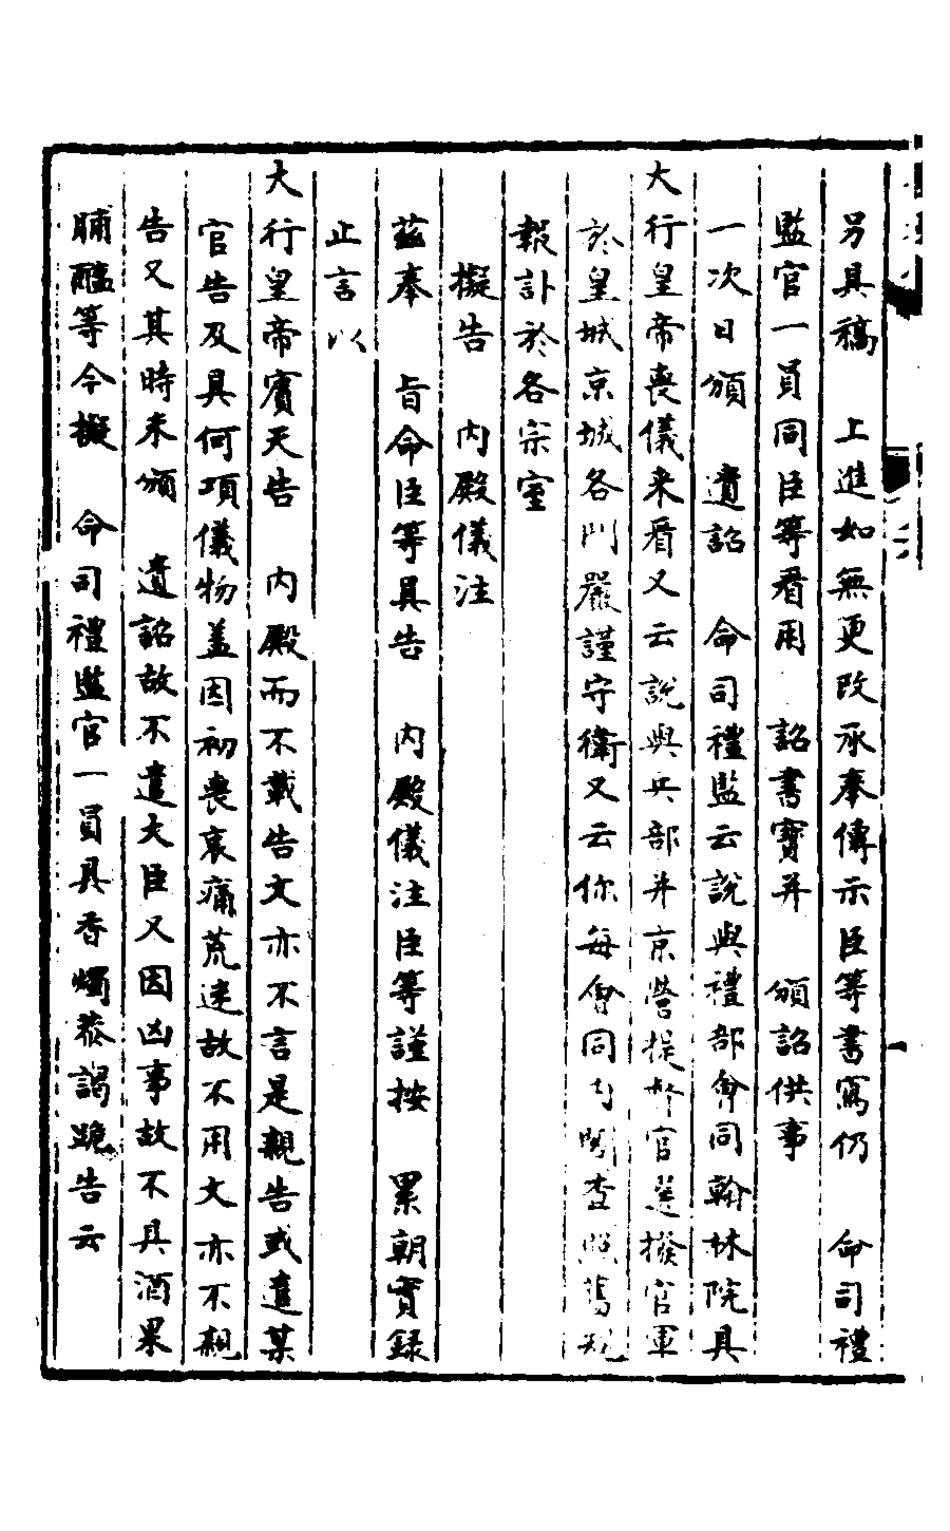 另具稿　上進如無更改承奉傳示臣等書寫仍　命司禮
監官一員同臣等看用　詔書寶并　頒詔供事
一次日頒　遺詔　命司禮監云說與禮部會同翰林院具
大行皇帝喪儀来看又云說與兵部并京營提督官選撥官軍
於皇城京城各門嚴謹守衛又云你每會同內閣查照舊規
報訃於各宗室
擬告　內殿儀注
茲奉　旨命臣等具告　內殿儀注臣等謹按　累朝實録
止言以
大行皇帝賓天告　內殿而不載告文亦不言是親告或遣某
官告及具何項儀物盖因初喪哀痛荒迷故不用文亦不親
告又其時未頒　遺詔故不遣大臣又因凶事故不具酒果
脯醢等今擬　命司禮監官一員具香燭恭謁跪告云